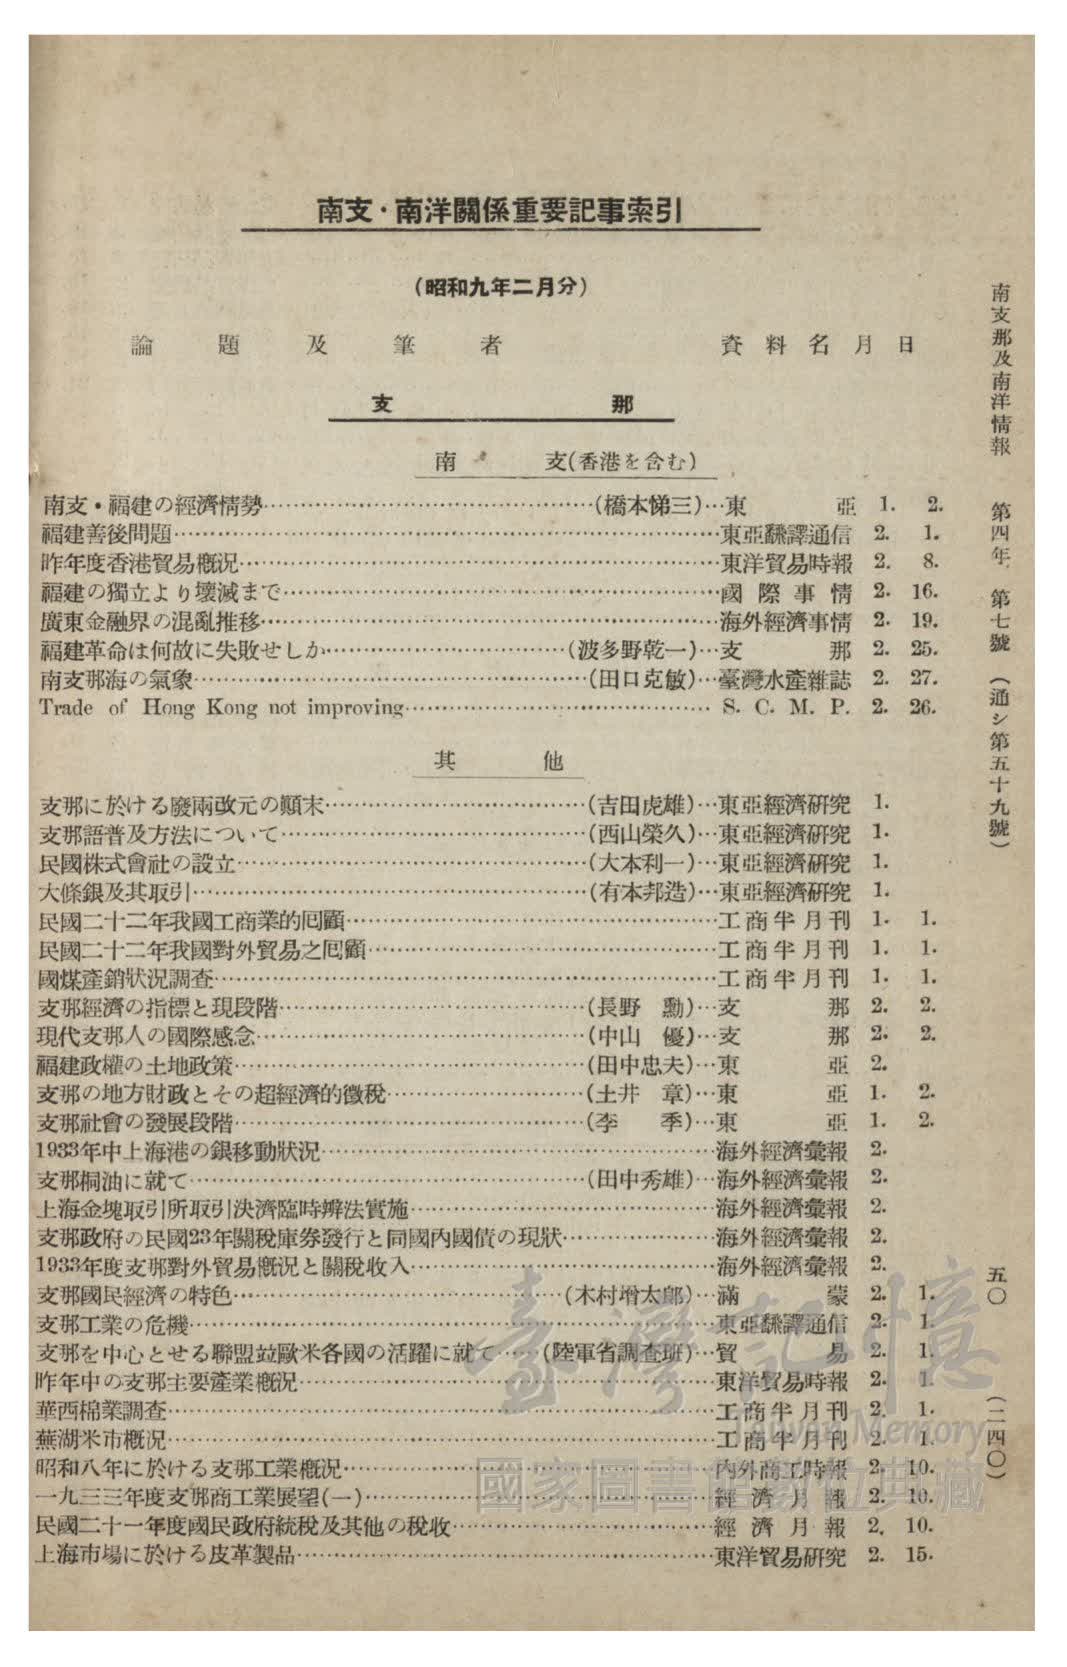 南支・南洋關係重要記事索引
(昭和九年二月分)
論題及筆者 資料名 月日
支那
南支(香港を含む)
南支・福建の經濟情勢……(橋本悌三)…東亞 1. 2.
福建善後問題……東亞飜譯通信 2. 1.
昨年度香港貿易槪況……東洋貿易時報 2. 8.
福建の獨立より壞滅まで……國際事情 2. 16.
廣東金融界の混亂推移……海外經濟事情 2. 19.
福建革命は何故に失敗せしか……(波多野乾一)…支那 2. 25.
南支那海の氣象……(田口克敏)…臺灣水產雜誌 2. 27.
Trade of Hong Kong not improving…… S. C. M. P. 2. 26.
其他
支那に於ける廢兩改元の顚末……(吉田虎雄)…東亞經濟硏究 1.
支那語普及方法について……(西山榮久)…東亞經濟硏究 1.
民國株式會社の設立……(大本利一)…東亞經濟硏究 1.
大條銀及其取引……(有本邦造)…東亞經濟硏究 1.
民國二十二年我國工商業的囘顧……工商半月刊 1. 1.
民國二十二年我國對外貿易之囘顧……工商半月刊 1. 1.
國煤產銷狀況調查……工商半月刊 1. 1.
支那經濟の指標と現段階……(長野 勳)…支那 2. 2.
現代支那人の國際感念……(中山 優)…支那 2. 2.
福建政權の土地政策……(田中忠夫)…東亞 2.
支那の地方財政とその超經濟的徵稅……(土井 章)…東亞 1. 2.
支那社會の發展段階……(李 季)…東亞 1. 2.
1933年中上海港の銀移動狀況……海外經濟彙報 2.
支那桐油に就て……(田中秀雄)…海外經濟彙報 2.
上海金塊取引所取引決濟臨時辦法實施……海外經濟彙報 2.
支那政府の民國23年關稅庫券發行と同國內國債の現狀……海外經濟彙報 2.
1933年度支那對外貿易槪況と關稅收入……海外經濟彙報 2.
支那國民經濟の特色……(木村增太郞)…滿蒙 2. 1.
支那工業の危機……東亞飜譯通信 2. 1.
支那を中心とせる聯盟竝歐米各國の活躍に就て……(陸軍省調査班)…貿易 2. 1.
昨年中の支那主要產業槪況……東洋貿易時報 2. 1.
華西棉業調查……工商半月刊 2. 1.
蕪湖米市槪況……工商半月刊 2. 1.
昭和八年に於ける支那工業槪況……內外商工時報 2. 10.
一九三三年度支那商工業展望(一)……經濟月報 2. 10.
民國二十一年度國民政府統稅及其他の稅收……經濟月報 2. 10.
上海市場に於ける皮革製品……東洋貿易硏究 2. 15.
南支那及南洋情報 第四年 第七號 (通シ第五十九號)
五〇 (二四〇)
臺灣記憶
Taiwan Memory
國家圖書館數位典藏